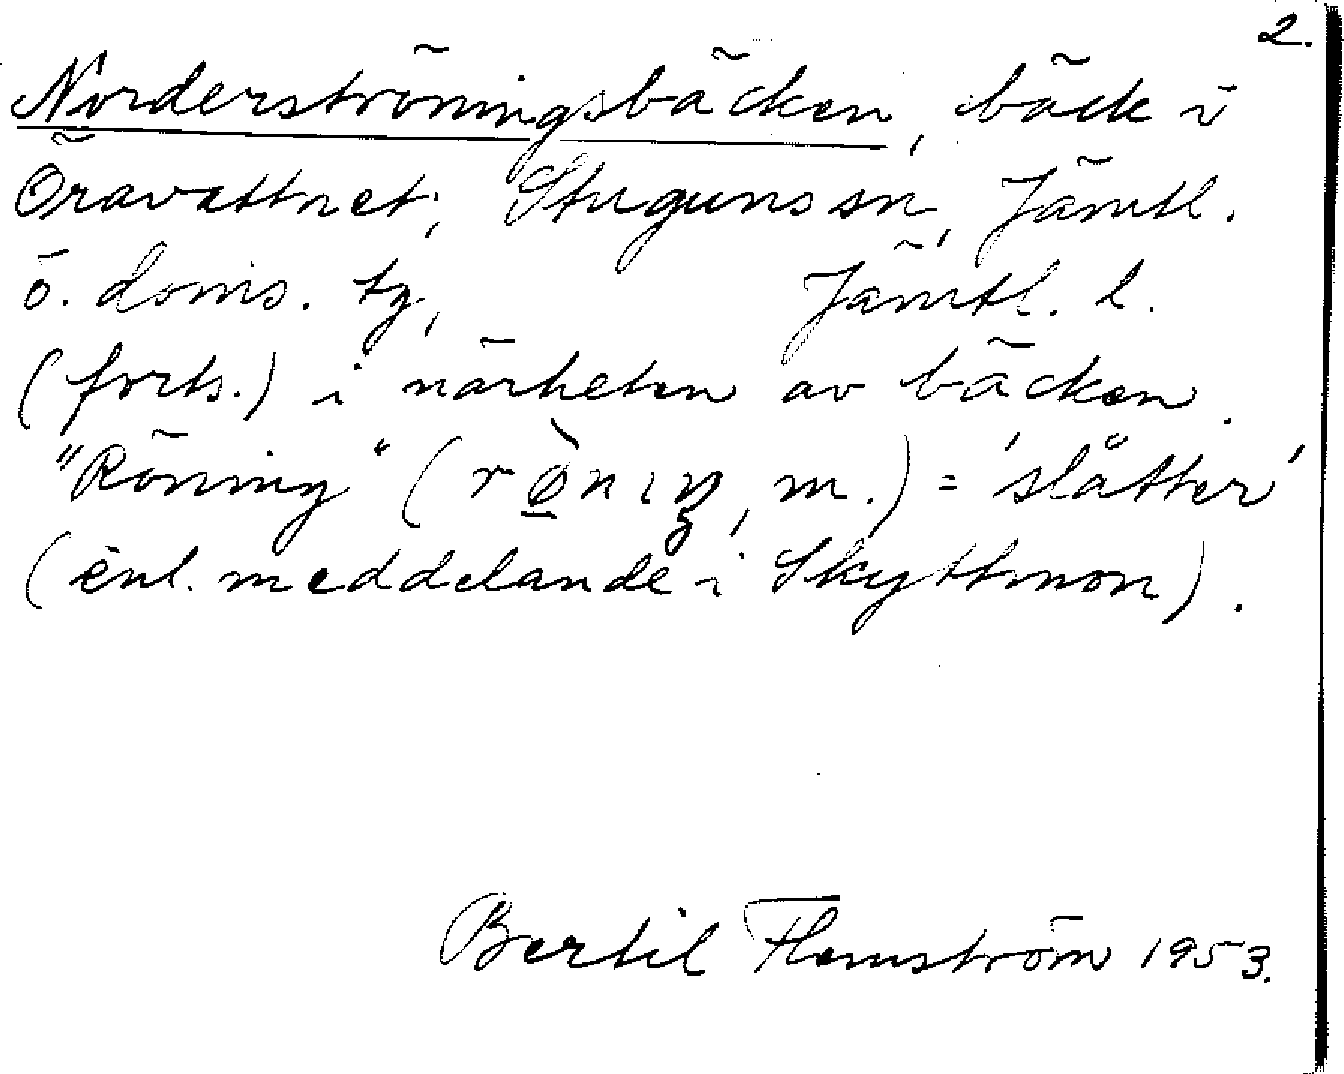 2.
Norderströningsbäcken, bäck i
Öravattnet, Stuguns sn, Jämtl.
ö. doms. tg, Jämtl. l.
(forts.) i närheten av bäcken.
"Röning" (rø̀nıŋ, m.) = 'slåtter'
(enl. meddelande i Skyttmon).
Bertil Flemström 1953.